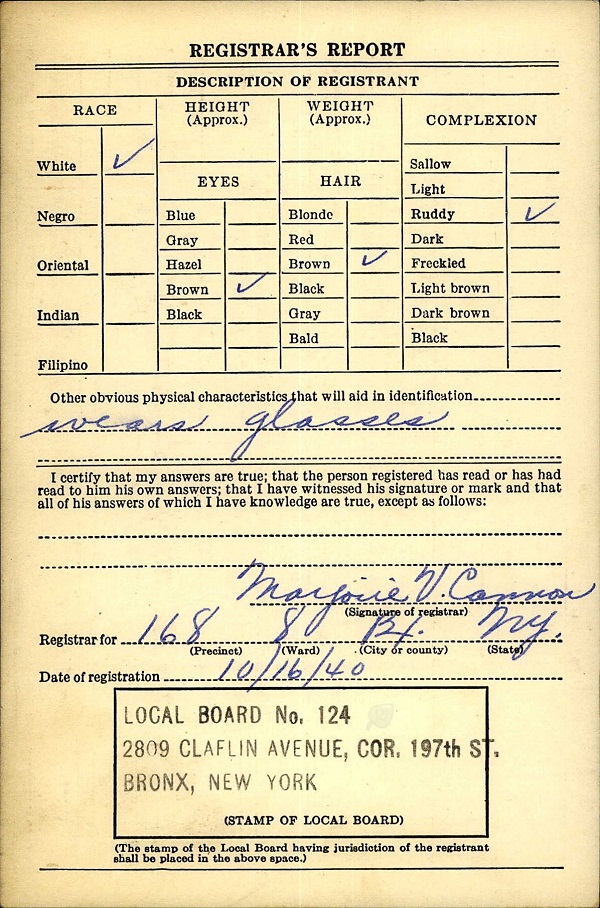 REGISTRAR'S REPORT
DESCRIPTION OF REGISTRANT
RACE
HEIGHT
(Approx.)
WEIGHT
(Approx.)
COMPLEXION
White ✓
Negro
Oriental
Indian
Filipino
EYES
Blue
Gray
Hazel
Brown ✓
Black
HAIR
Blonde
Red
Brown ✓
Black
Gray
Bald
Sallow
Light
Ruddy ✓
Dark
Freckled
Light brown
Dark brown
Black
Other obvious physical characteristics that will aid in identification
wears glasses
I certify that my answers are true; that the person registered has read or has had
read to him his own answers; that I have witnessed his signature or mark and that
all of his answers of which I have knowledge are true, except as follows:
Marjorie V. Cannon
(Signature of registrar)
Registrar for 168 8 Bx. NY.
(Precinct) (Ward) (City or county) (State)
Date of registration 10/16/40
LOCAL BOARD No. 124
2809 CLAFLIN AVENUE, COR. 197th ST.
BRONX, NEW YORK
(STAMP OF LOCAL BOARD)
(The stamp of the Local Board having jurisdiction of the registrant
shall be placed in the above space.)